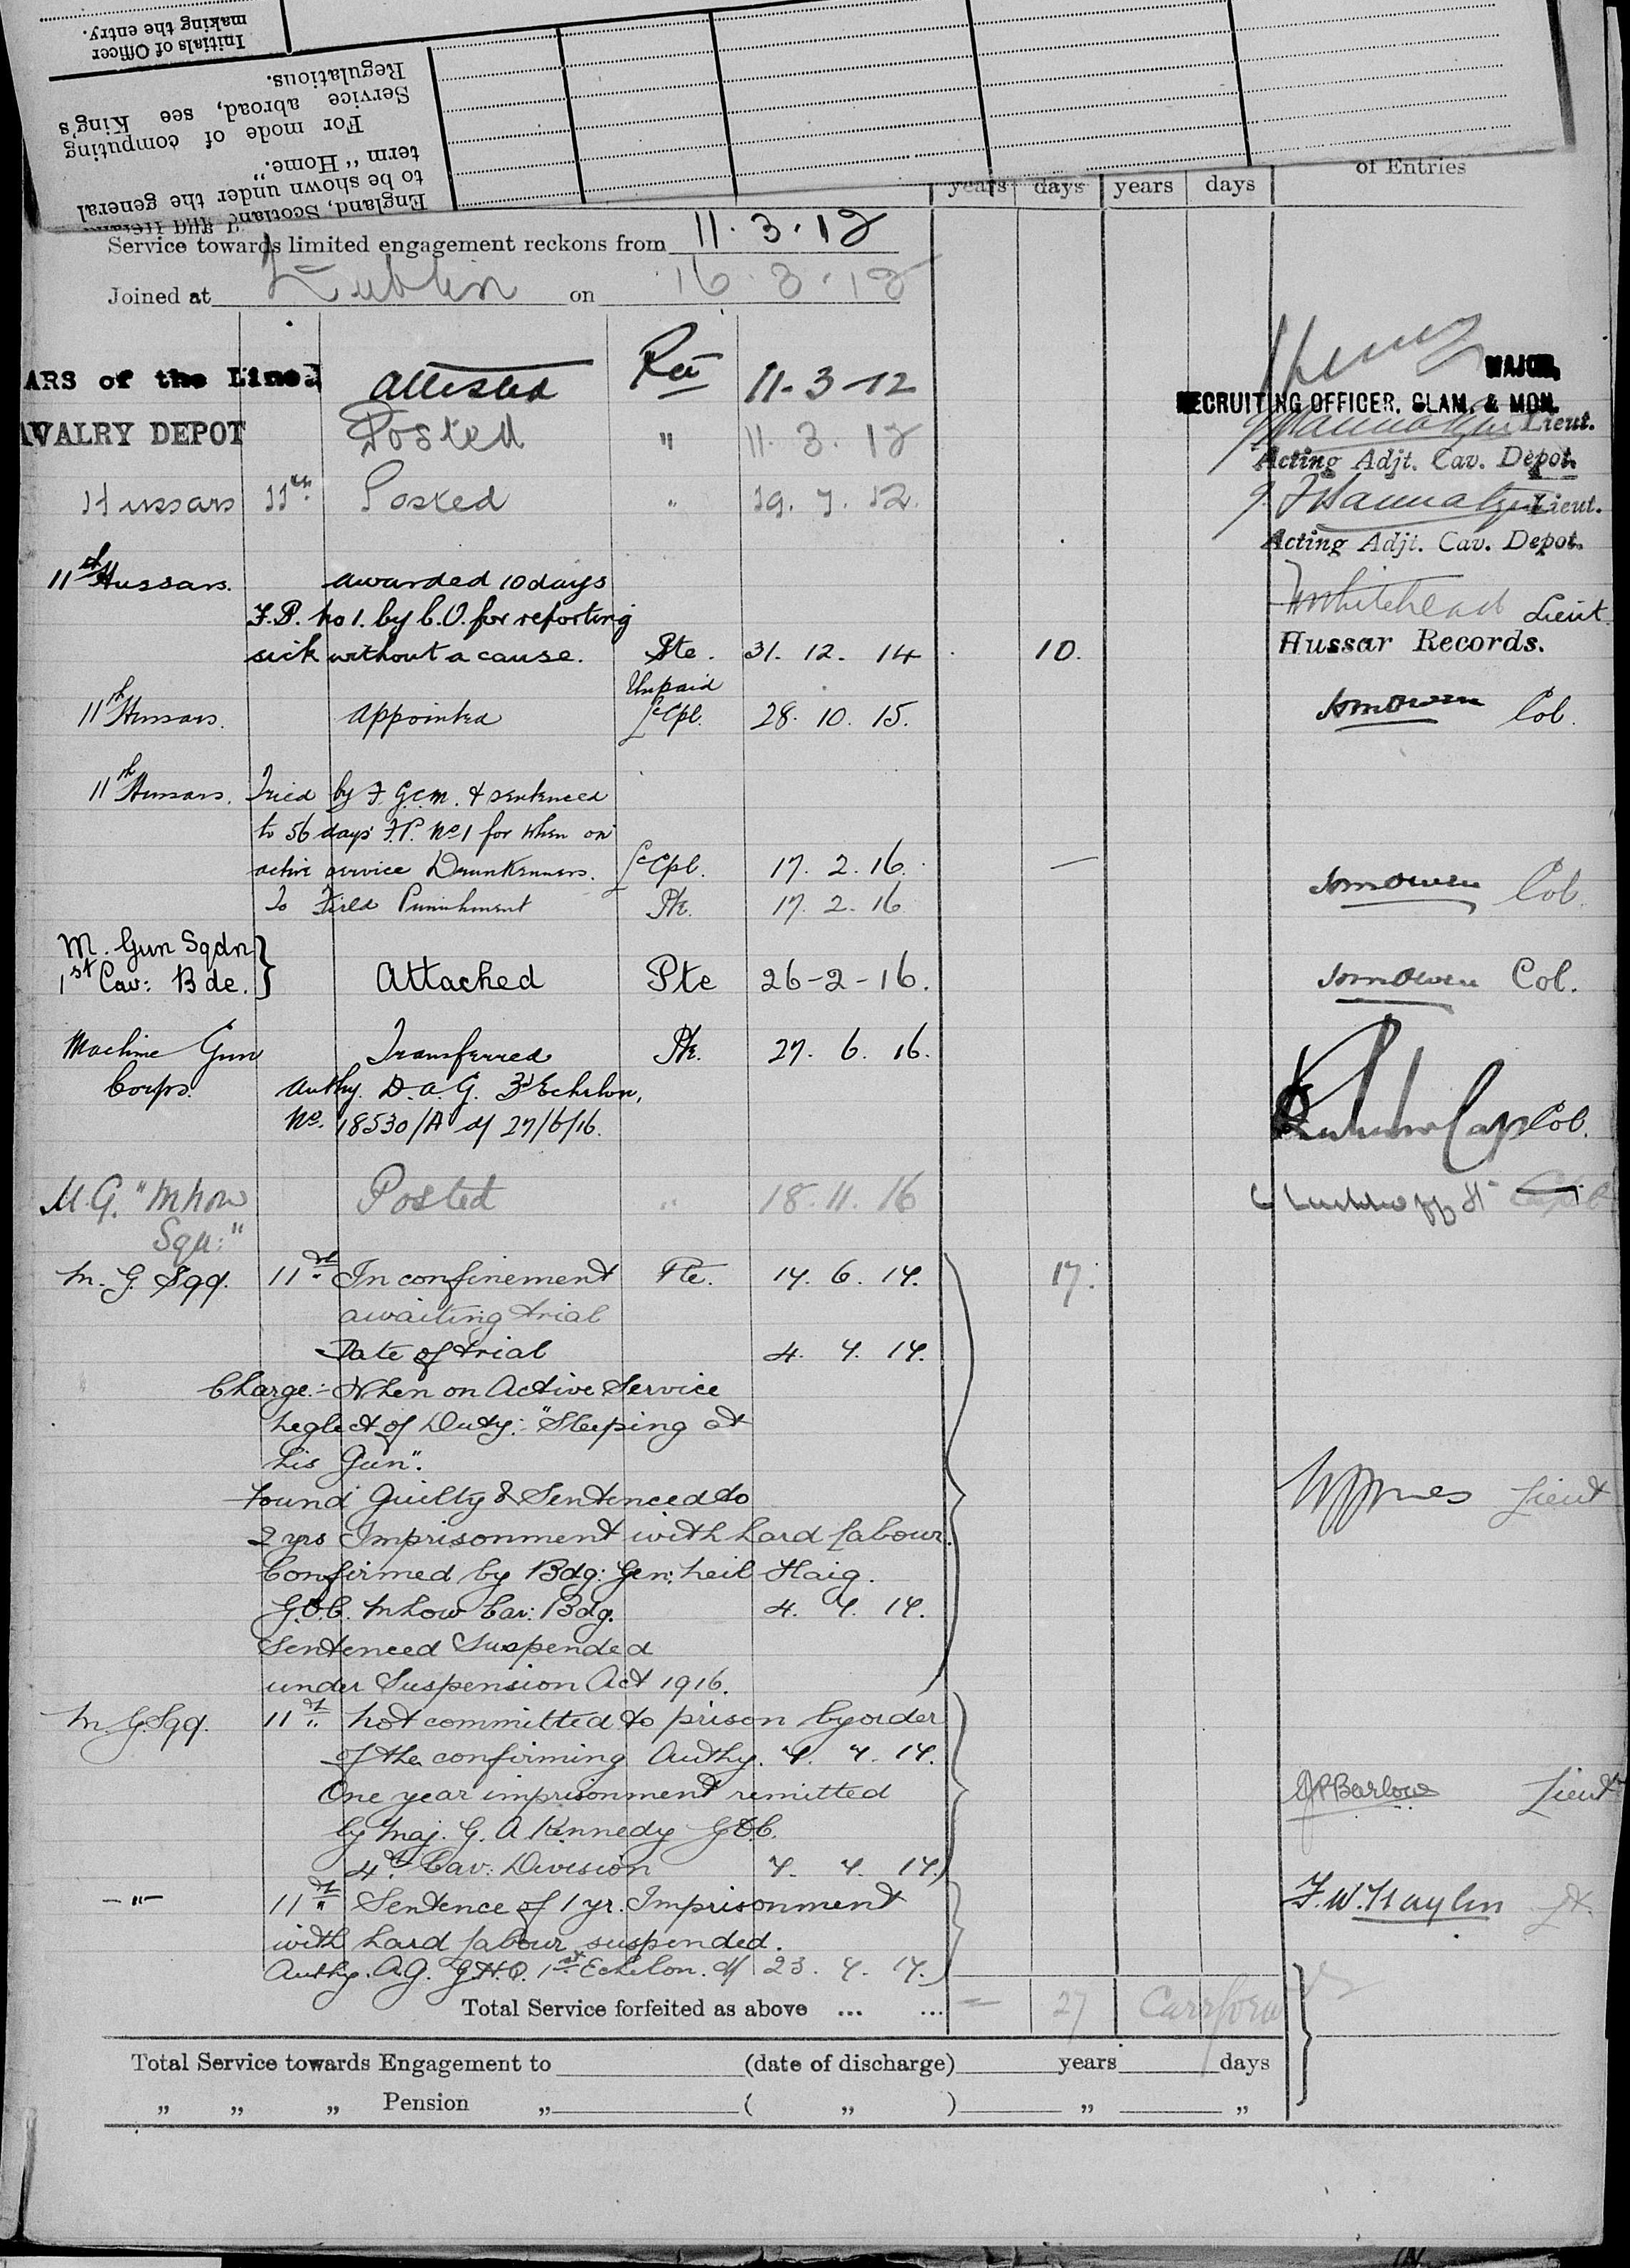 Initials of Officer
making the entry.
England, Scotland and Ireland
to be shown under the general
term "Home."
For mode of computing
Service abroad, see King's
Regulations.
years days years days of Entries
Service towards limited engagement reckons from 11.3.12
Joined at Dublin on 16.3.12
ARS of the Line. Attested 11-3-12 MAJOR,
RECRUITING OFFICER, GLAM. & MON.
AVALRY DEPOT Posted " 11.3.12 Lieut.
Acting Adjt. Cav. Depot.
Hussars 11th Posted " 19.7.12. Lieut.
Acting Adjt. Cav. Depot.
11th Hussars. awarded 10 days Whitehead Lieut.
F.P. No 1. by C.O. for reporting
sick without a cause. Pte. 31. 12. 14 10. Hussar Records.
Unpaid
11th Hussars. Appointed L/Cpl. 28. 10. 15. Owen Col.
11th Hussars. Tried by F.G.C.M. & sentenced
to 56 days' F.P. No 1 for when on
active service Drunkenness. L/Cpl. 17. 2. 16. — Owen Col.
To Field Punishment Pte. 17. 2. 16
M. Gun Sqdn
1st Cav: Bde. } Attached Pte 26-2-16. Owen Col.
Machine Gun Transferred Pte. 27. 6. 16.
Corps. Authy. D.A.G. 3d Echelon,
No. 18530/A d/ 27/6/16. Col.
M.G. "Mhow Posted " 18.11.16
Sqn:"
M. G. Sqq. 11th In confinement Pte. 17. 6. 17. 17.
awaiting trial
Date of trial 4. 7. 17.
Charge:- When on Active Service
Neglect of Duty:- "Sleeping at
his Gun".
Found Guilty & Sentenced to Lieut
2 yrs Imprisonment with hard labour.
Confirmed by Bdg: Gen: Neil Haig.
G.O.C. Mhow Cav: Bdg. 4. 7. 17.
Sentenced Suspended
under Suspension Act 1916.
M. G. Sqq. 11th " Not committed to prison by order
of the confirming Authy. 7. 7. 17.
One year imprisonment remitted Barlow Lieut
by Maj. G. A Kennedy GOC.
4th Cav: Division 7. 7. 17.
-"- 11th " Sentence of 1 yr. Imprisonment F.W. Lt.
with hard labour suspended.
Authy. A.G. G.H.Q. 1st Echelon. d/ 23. 7. 17.
Total Service forfeited as above ... ... — 27
Total Service towards Engagement to (date of discharge) years days
" " " Pension " ( " ) " "